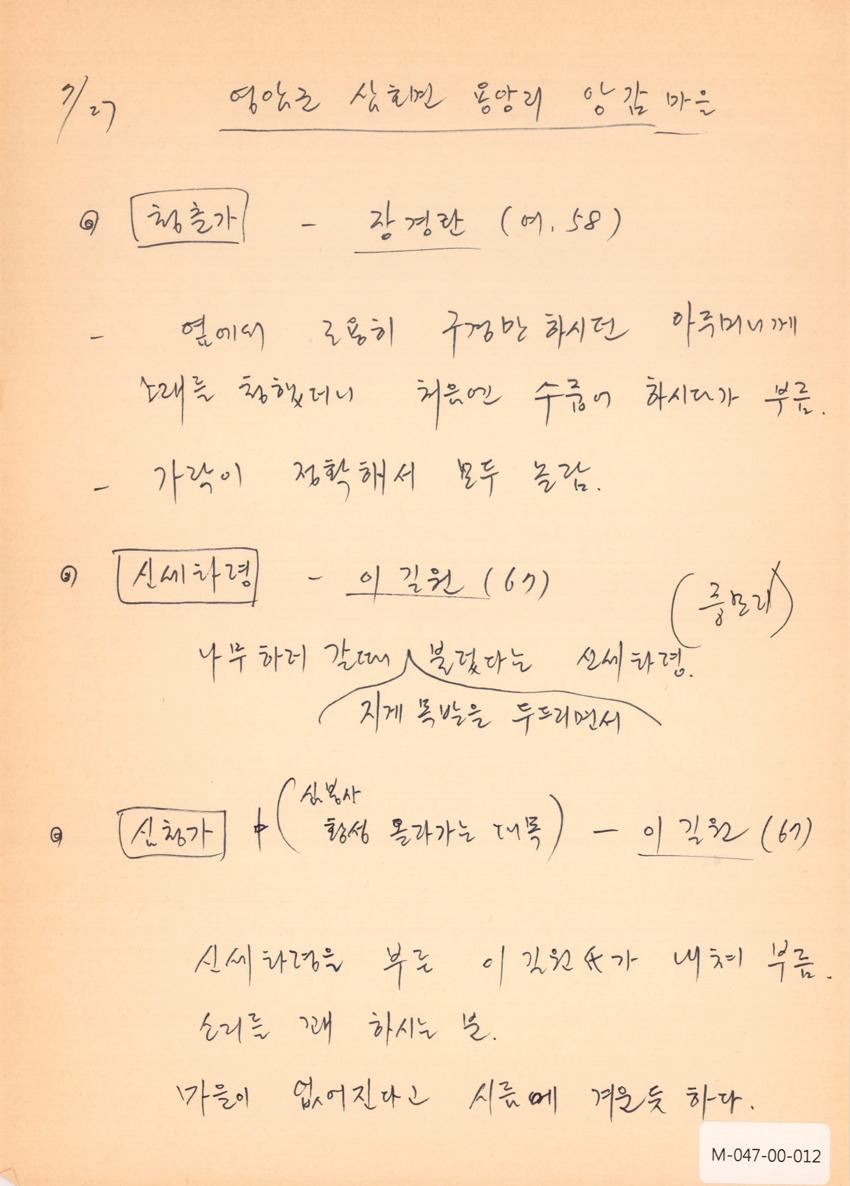 7/27 영암군 삼호면 용앙리 앙감 마을
◎ 청춘가 - 장경란 (여. 58)
- 옆에서 조용히 구경만 하시던 아주머니께
노래를 청했더니 처음엔 수줍어 하시다가 부름.
- 가락이 정확해서 모두 놀람.
◎ 신세타령 - 이길원 (67)
(중모리)
나무하러 갈때 불렀다는 신세타령.
지게 목발을 두드리면서
심봉사
◎ 심청가 中 (황성 올라가는 대목) - 이길원 (67)
신세타령을 부른 이길원氏가 내쳐 부름.
소리를 꽤 하시는 분.
마을이 없어진다고 시름에 겨운듯 하다.
M-047-00-012